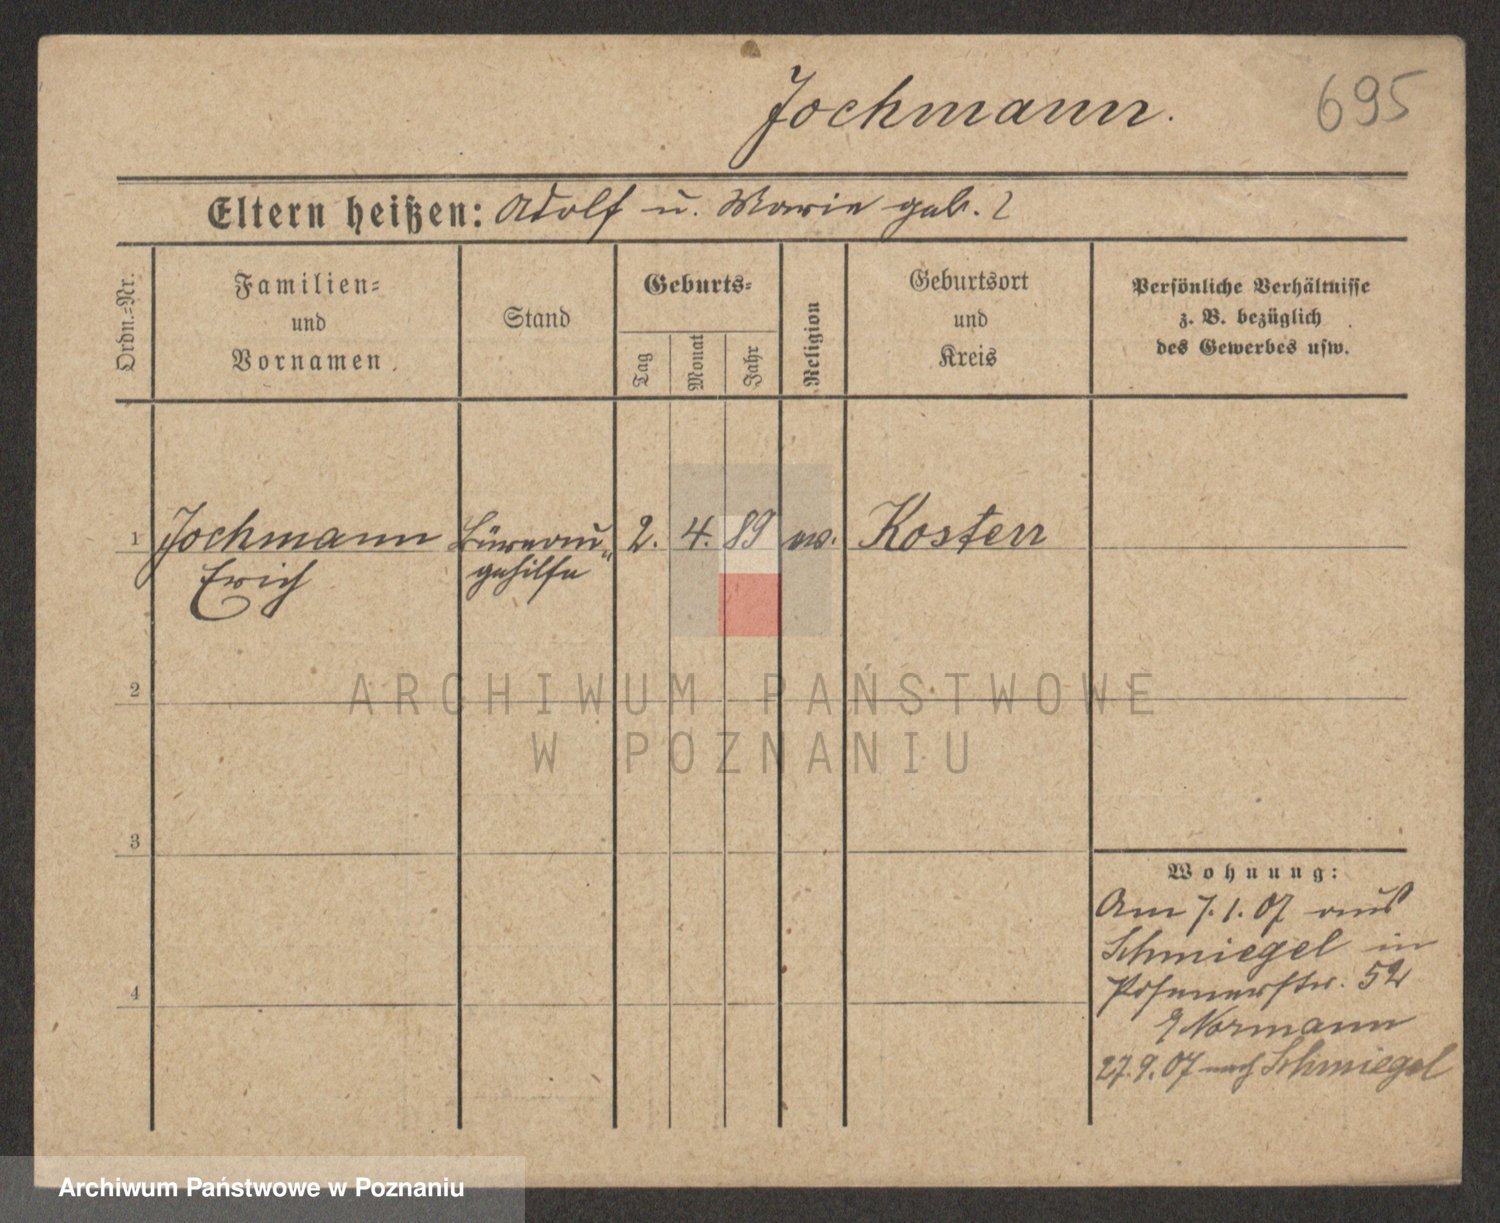 Jochmann.
695
Eltern heißen: Adolf u. Marie geb. ?
Ordn.=Nr.
Familien=
und
Vornamen
Stand
Geburts=
Tag
Monat
Jahr
Religion
Geburtsort
und
Kreis
Persönliche Verhältnisse
z. B. bezüglich
des Gewerbes usw.
1 Jochmann Büreau= 2. 4. 89 ev. Kosten
Erich gehilfe
2
3
4
Wohnung:
Am 7.1.07 aus
Schmiegel in
Posenerstr. 52
Normann
27.9.07 nach Schmiegel
ARCHIWUM PAŃSTWOWE
W POZNANIU
Archiwum Państwowe w Poznaniu